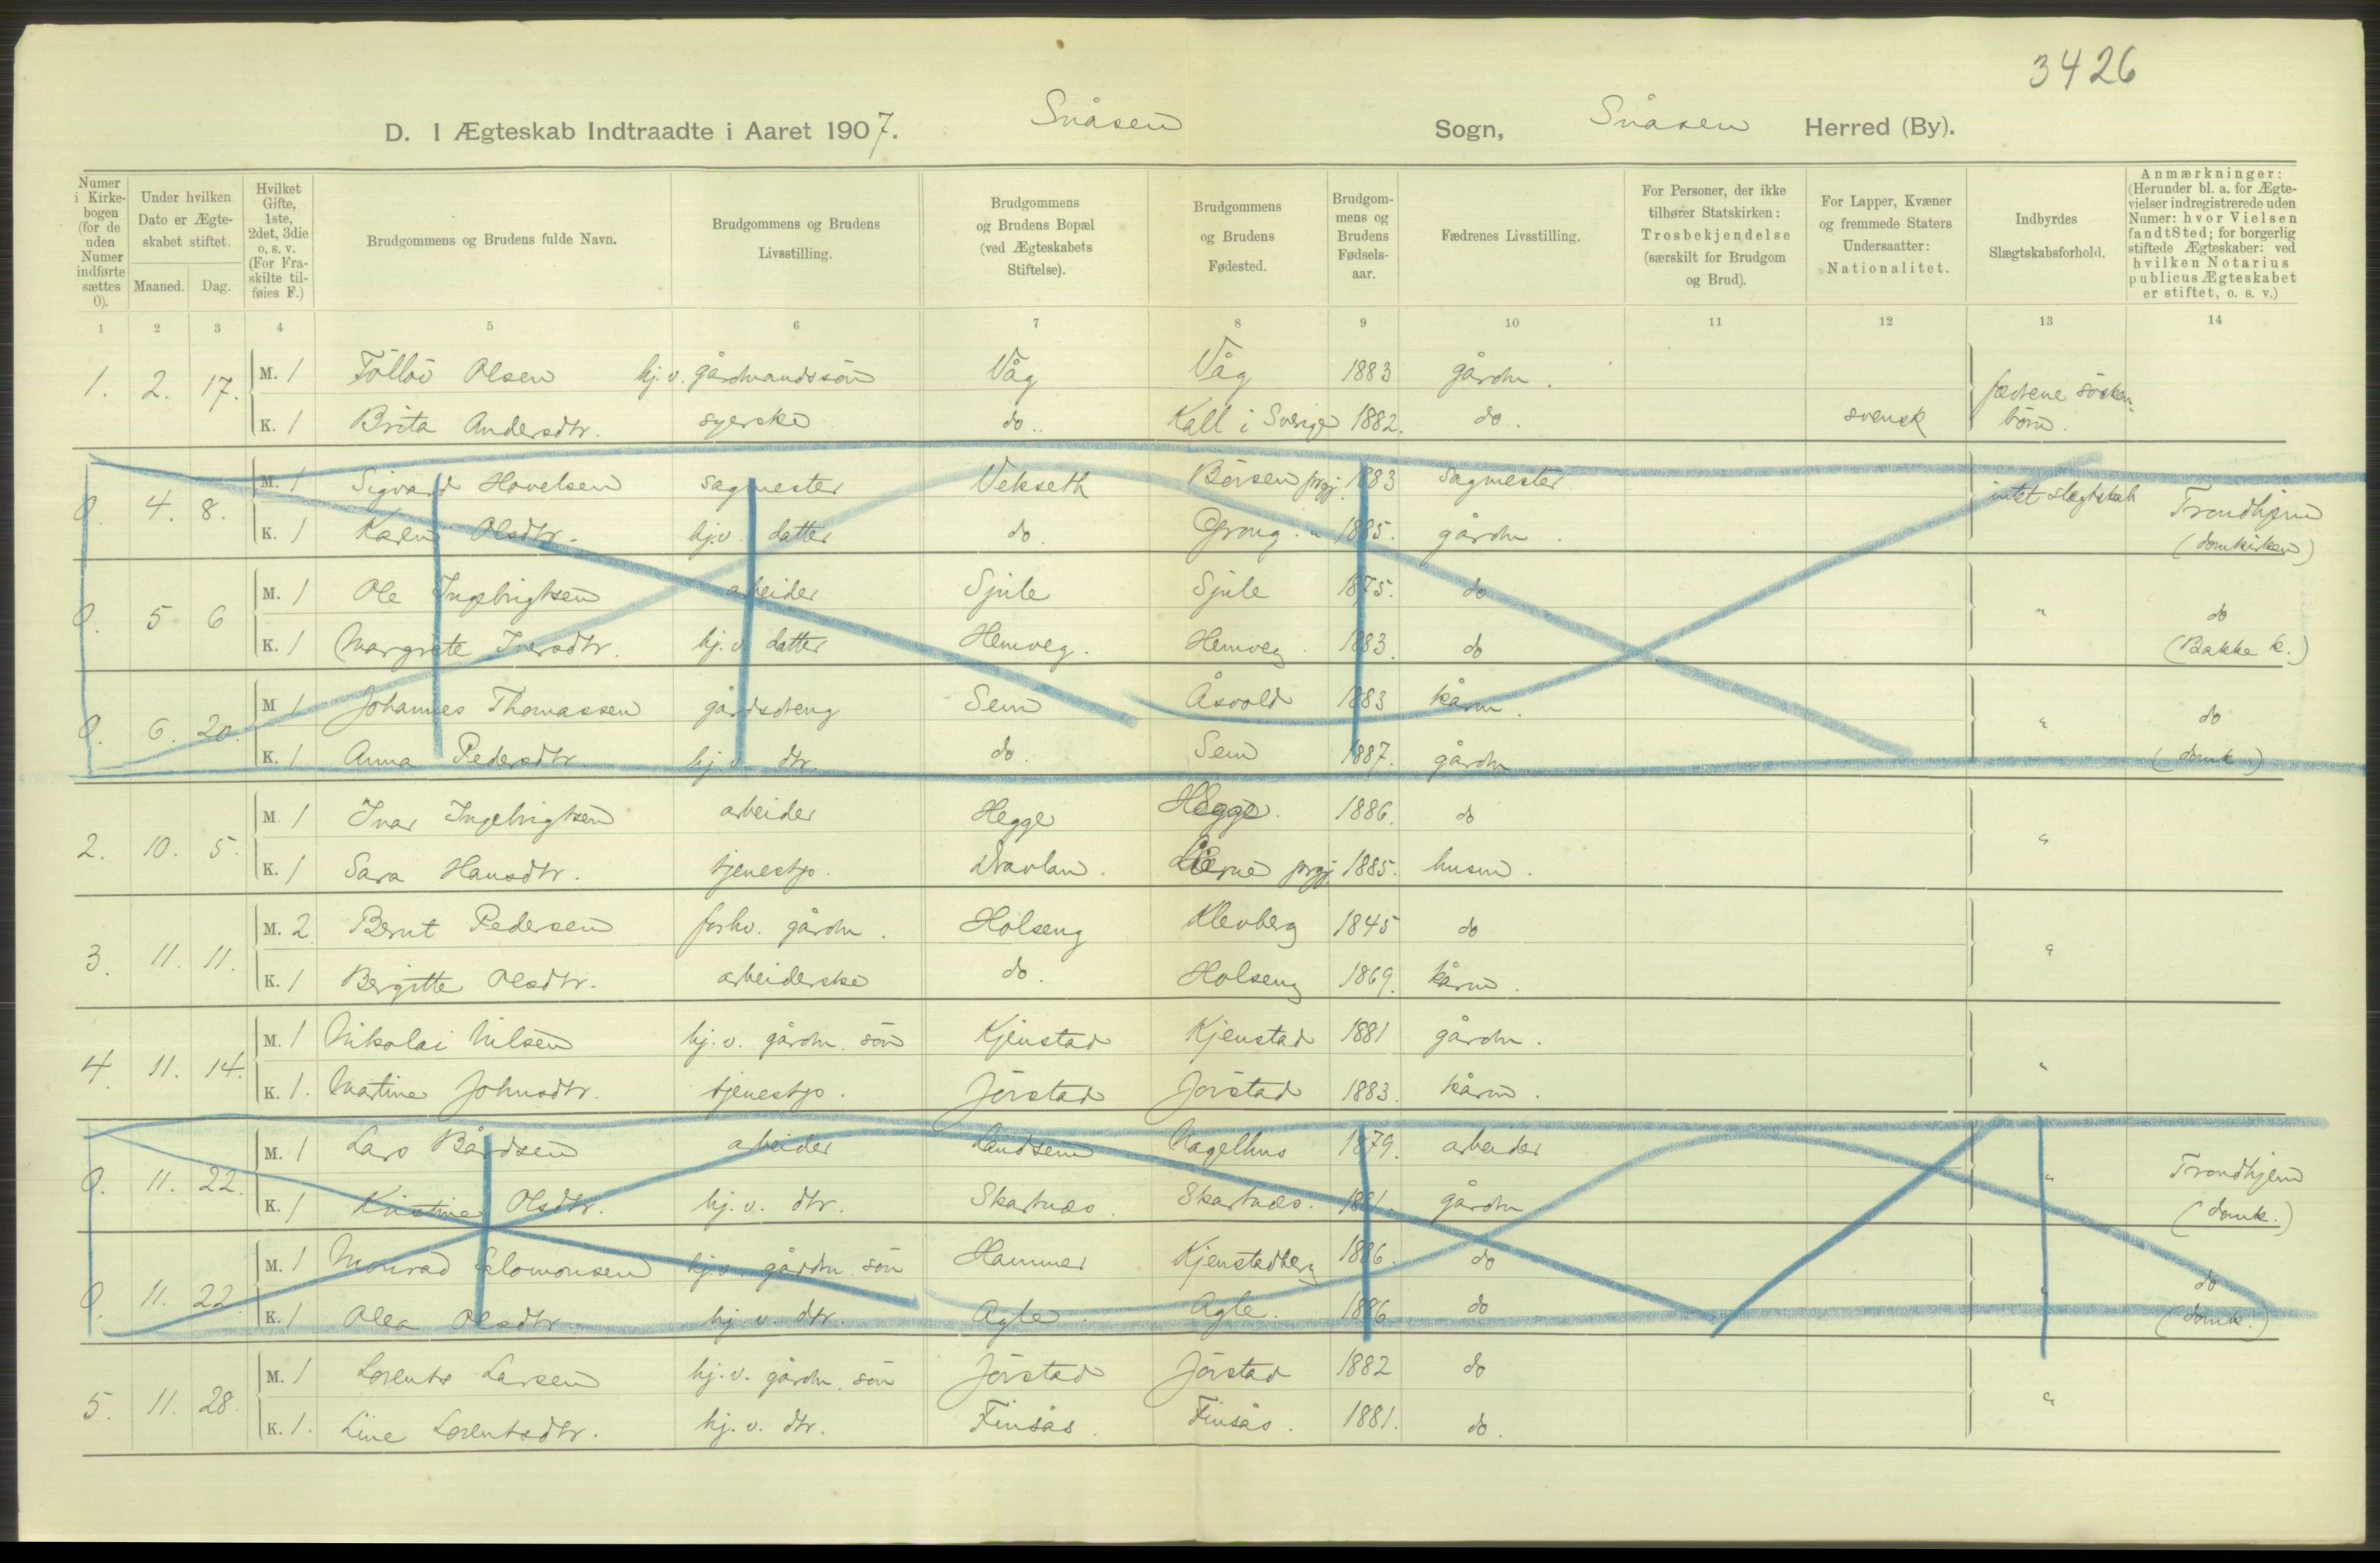 3426
D. I Ægteskab Indtraadte i Aaret 1907. Snåsen Sogn, Snåsen Herred (By).
Numer i Kirkebogen (for de uden Numer indførte sættes 0).
Under hvilken Dato er Ægteskabet stiftet.
Maaned. Dag.
Hvilket Gifte, 1ste, 2det, 3die o. s. v. (For Fraskilte tilføies F.)
Brudgommens og Brudens fulde Navn.
Brudgommens og Brudens Livsstilling.
Brudgommens og Brudens Bopæl (ved Ægteskabets Stiftelse).
Brudgommens og Brudens Fødested.
Brudgommens og Brudens Fødselsaar.
Fædrenes Livsstilling.
For Personer, der ikke tilhører Statskirken: Trosbekjendelse (særskilt for Brudgom og Brud).
For Lapper, Kvæner og fremmede Staters Undersaatter: Nationalitet.
Indbyrdes Slægtskabsforhold.
Anmærkninger: (Herunder bl. a. for Ægtevielser indregistrerede uden Numer: hvor Vielsen fandt Sted; for borgerlig stiftede Ægteskaber: ved hvilken Notarius publicus Ægteskabet er stiftet, o. s. v.)
1 2 3 4 5 6 7 8 9 10 11 12 13 14
1. 2. 17. M. 1 Tölløv Olsen hj. v. gårdmandssön Våg Våg 1883 gårdm. fædrene sösken-
K. 1 Brita Andersdtr. syerske do. Kall i Sverige 1882. do. svensk börn.
0. 4. 8. M. 1 Sigvard Hovelsen sagmester Vekseth Börsen prgj. 1883 Sagmester intet slegtskab Trondhjem
K. 1 Karen Olsdtr. hj.v. datter do. Grong. " 1885. gårdm. (domkirken)
0. 5 6 M. 1 Ole Ingebrigtsen arbeider Sjule Sjule 1875. do " do
K. 1 Margrete Iversdtr. hj. v. datter Hemveg. Hemveg. 1883. do (Bakke k.)
0. 6. 20. M 1 Johannes Thomassen gårdsdreng Sem Åsvold 1883 kårm. " do
K. 1 Anna Pedersdtr hj. v. dtr. do. Sem 1887. gårdm. (domk.)
2. 10. 5. M 1 Ivar Ingebrigtsen arbeider Hegge Hegge. 1886. do "
K. 1 Sara Hansdtr. tjenestp. prgj. 1885. husm.
3. 11. 11. M. 2 Bernt Pedersen forhv. gårdm. Holseng Klevberg 1845 do "
K. 1 Bergitte Olsdtr. arbeiderske do. Holseng 1869. kårm.
4. 11. 14. M. 1 Nikolai Nilsen hj. v. gårdm. sön Kjenstad Kjenstad 1881 gårdm. "
K. 1. Martine Johnsdtr. tjenestp. Jörstad Jörstad 1883. kårm.
0. 11. 22. M. 1 Lars Bårdsen arbeider Landsem Nagelhus 1879. arbeider " Trondhjem
K. 1 Kristine Olsdtr. hj. v. dtr. Skartnæs. Skartnæs. 1881. gårdm (domk.)
0. 11. 22. M. 1 Monrad Salomonsen hj. v. gårdm. sön Hammer Kjenstadberg 1886. do " do
K. 1 Olea Olsdtr. hj. v. dtr. Agle. Agle. 1886 do (domk.)
5. 11. 28. M. 1 Lorents Larsen hj. v. gårdm. sön Jörstad Jörstad 1882 do "
K. 1. Line Lorentsdtr. hj. v. dtr. Finsås. Finsås. 1881. do.